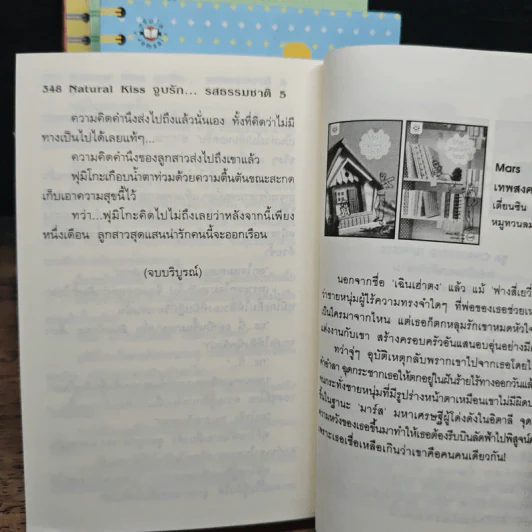 348 Natural Kiss จูบรัก... รสธรรมชาติ 5
ความคิดคำนึงส่งไปถึงแล้วนั่นเอง ทั้งที่คิดว่าไม่มี
ทางเป็นไปได้เลยแท้ๆ...
ความคิดคำนึงของลูกสาวส่งไปถึงเขาแล้ว
ฟุมิโกะเกือบน้ำตาท่วมด้วยความตื้นตันขณะสะกด
เก็บเอาความสุขนี้ไว้
ทว่า...ฟุมิโกะคิดไปไม่ถึงเลยว่าหลังจากนี้เพียง
หนึ่งเดือน ลูกสาวสุดแสนน่ารักคนนี้จะออกเรือน
(จบบริบูรณ์)
Mars
เทพสงค
เตี่ยนซิน
หมูหวานลม
นอกจากชื่อ 'เฉินเฮ่าตง' แล้ว แม้ 'ฟางสี่เยวี่
ว่าชายหนุ่มผู้ไร้ความทรงจำใดๆ ที่พ่อของเธอช่วยเห
เป็นใครมาจากไหน แต่เธอก็ตกหลุมรักเขาหมดหัวใจ
แต่งงานกับเขา สร้างครอบครัวอันแสนอบอุ่นอย่างมี
ทว่าจู่ๆ อุบัติเหตุกลับพรากเขาไปจากเธอโดยไ
คำอำลา ฉุดกระชากเธอให้ตกอยู่ในฝันร้ายไร้ทางออกวันแล้
นกระทั่งชายหนุ่มที่มีรูปร่างหน้าตาเหมือนเขาไม่มีผิดป
ขึ้นในฐานะ 'มาร์ส' มหาเศรษฐีผู้โด่งดังในอิตาลี จุด
ความหวังของเธอขึ้นมาทำให้เธอต้องรีบบินลัดฟ้าไปพิสูจน์ค
เพราะเธอเชื่อเหลือเกินว่าเขาคือคนคนเดียวกัน!